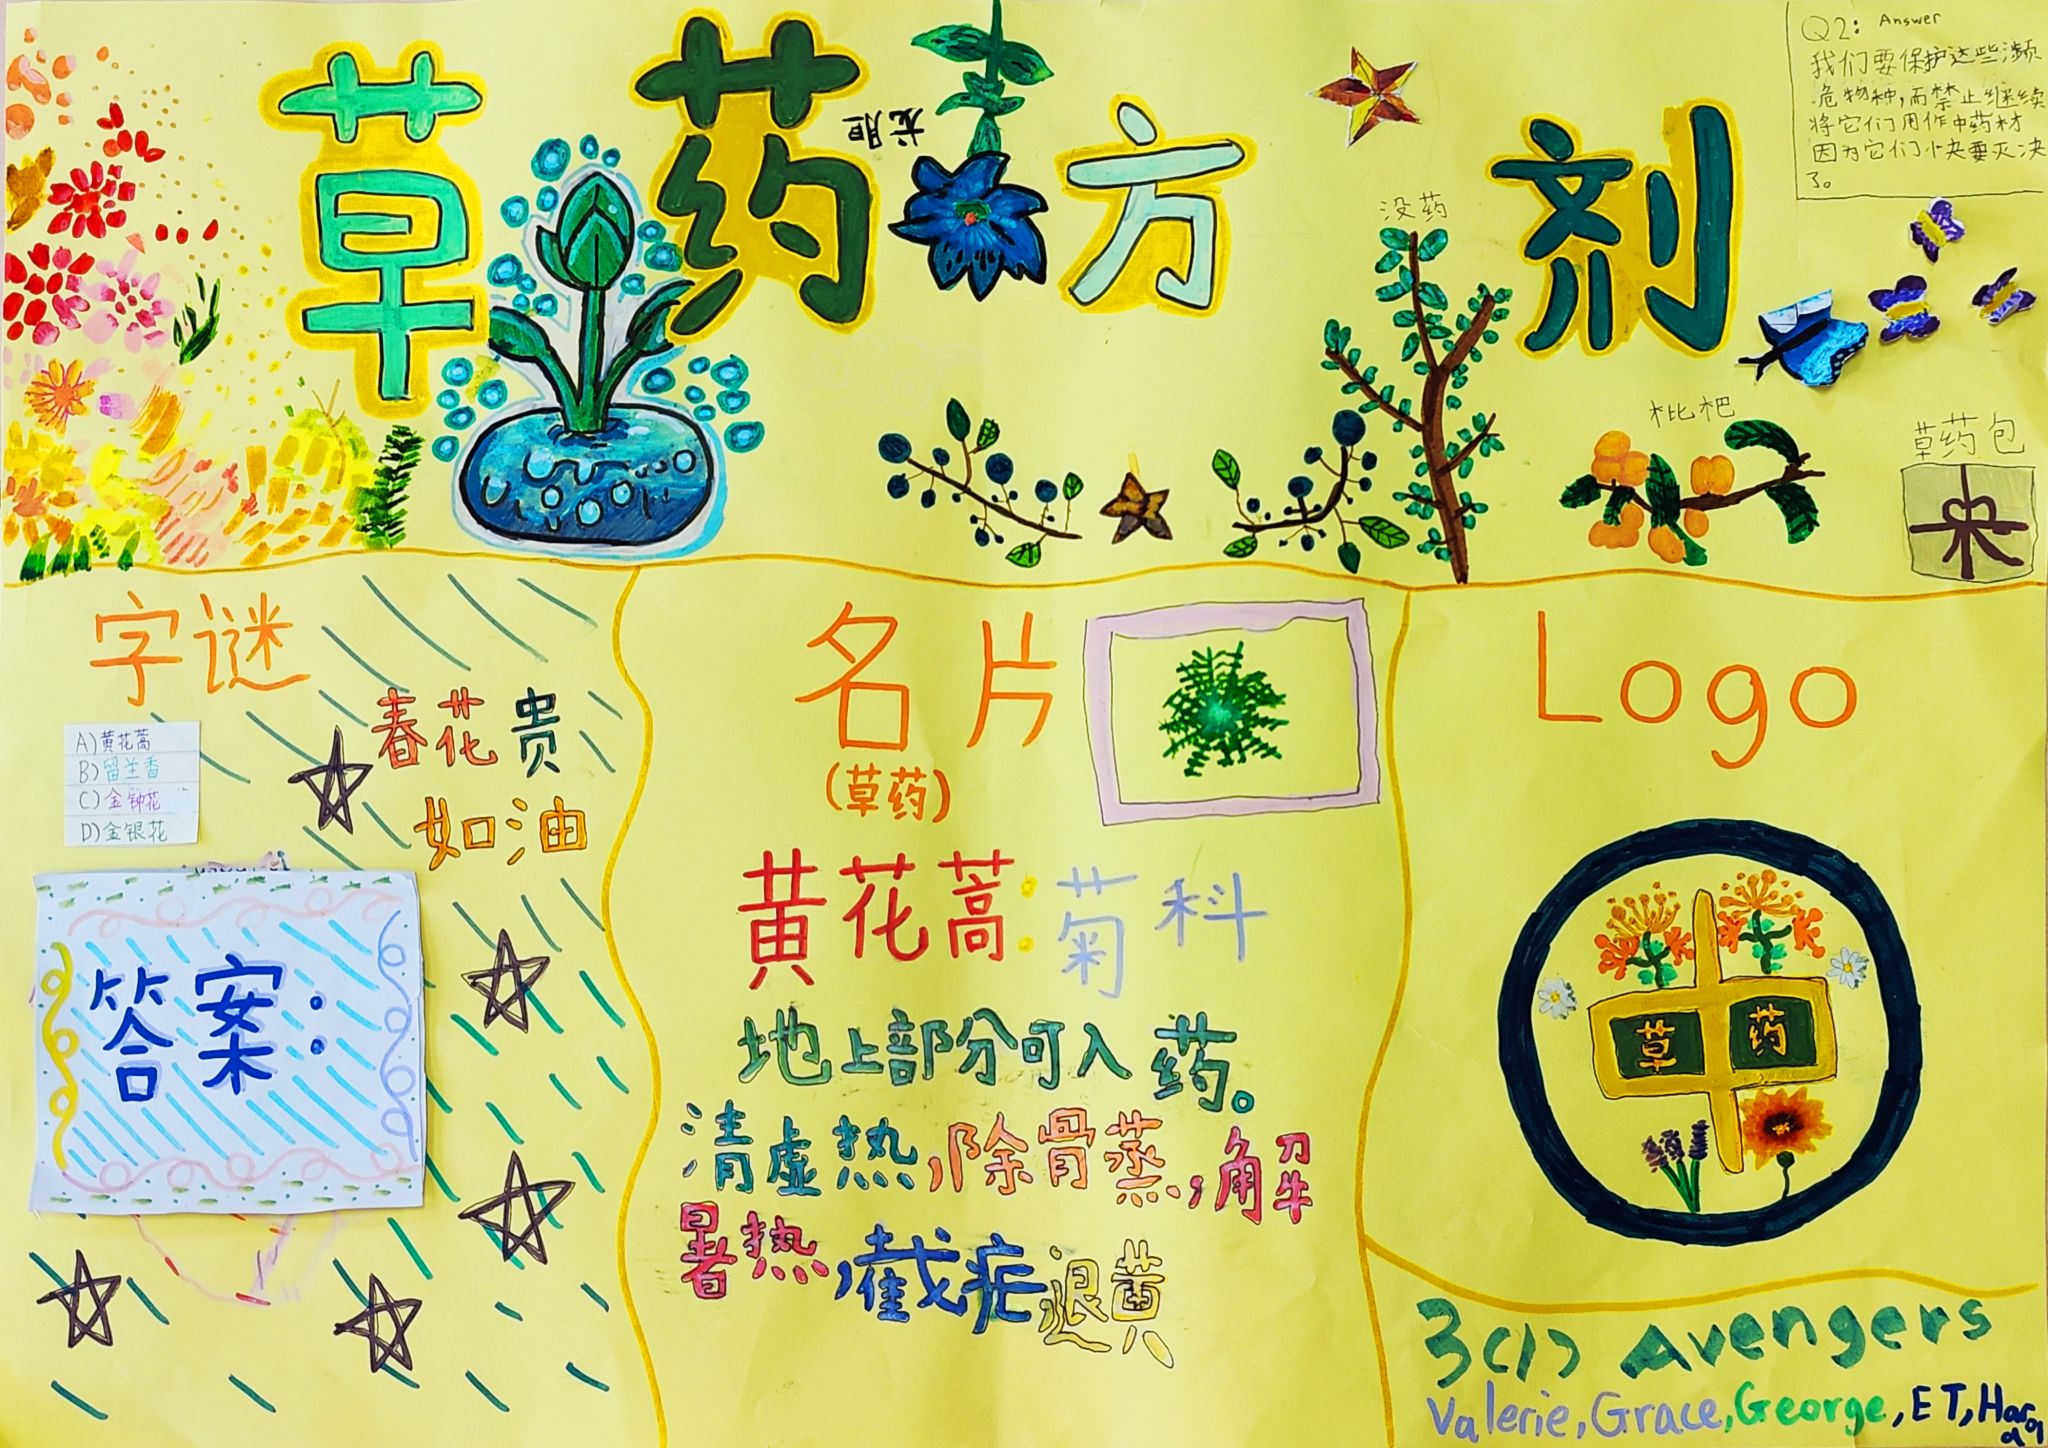 草药方剂
Q2: Answer
我们要保护这些濒
危物种,而禁止继续
将它们用作中药材
因为它们快要灭决
了。
龙胆
没药
枇杷
草药包
字谜
春花贵
如油
A)黄花蒿
B)留兰香
C)金钟花
D)金银花
答案:
名片
(草药)
黄花蒿:菊科
地上部分可入药。
清虚热,除骨蒸,解
暑热,截疟,退黄
Logo
中
草药
3(1) Avengers
Valerie, Grace, George, ET,